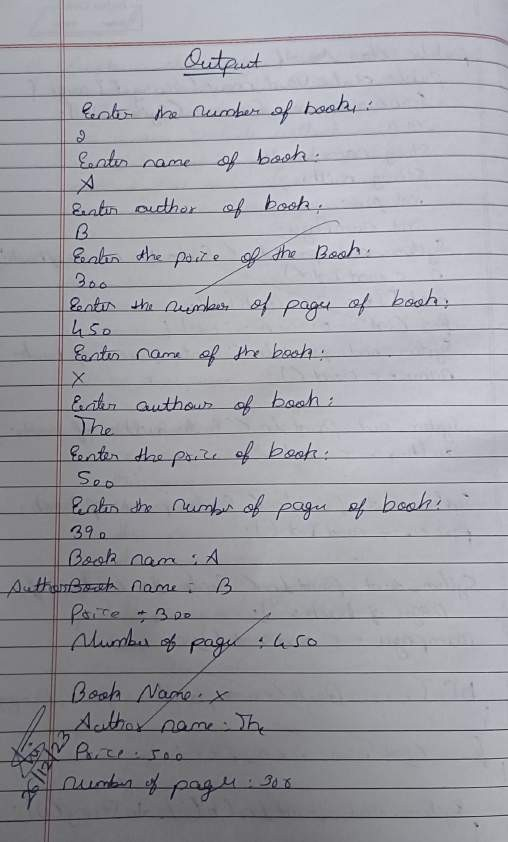 Output
Enter the number of book:
2
Enter name of book:
A
Enter author of book:
B
Enter the price of the Book:
300
Enter the number of page of book:
450
Enter name of the book:
X
Enter authour of book:
The
Enter the price of book:
500
Enter the number of page of book:
390
Book name : A
Author name : B
Price : 300
Number of page : 450
Book Name : X
Author name : The
Price : 500
number of page :
26/12/23